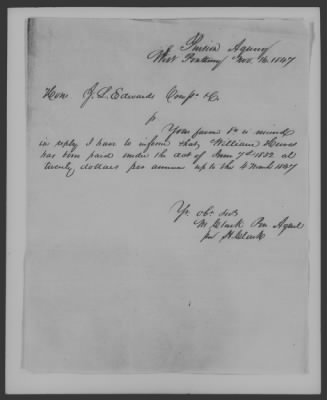 Pension Agency
West
Nov. 16. 1847
Hon. J. L. Edwards Comr &c
Yours favor 1st is
in reply I have to inform that William
has been paid under the act of June 7th 1832 at
twenty dollars per annum up to the 4 March 1847
Yr obt Servt
M Clark Pen Agent
pr H. Clark